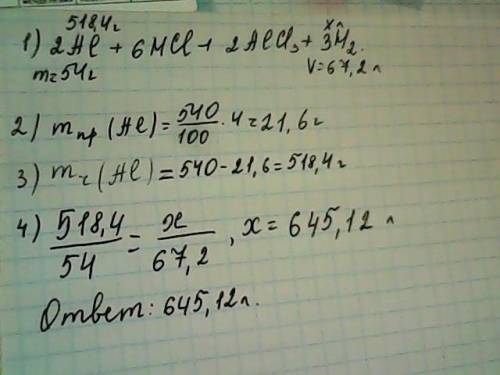 518,4г        x л
1) 2Al + 6HCl → 2AlCl₃ + 3H₂.
m=54г        V=67,2 л
2) mпр (Al) = 540/100 · 4 = 21,6г
3) mч (Al) = 540 - 21,6 = 518,4г
4) 518,4/54 = x/67,2 , x = 645,12 л
Ответ: 645,12л.